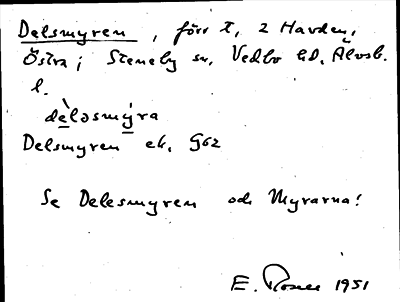 Delsmyren, förr t. 2 Harden,
Östra; Steneby sn, Vedbo hd, Älvsb.
l.
dèləsmýra
Delsmyren ek. G62
Se Delesmyren och Myrarna!
E. Rosell 1951